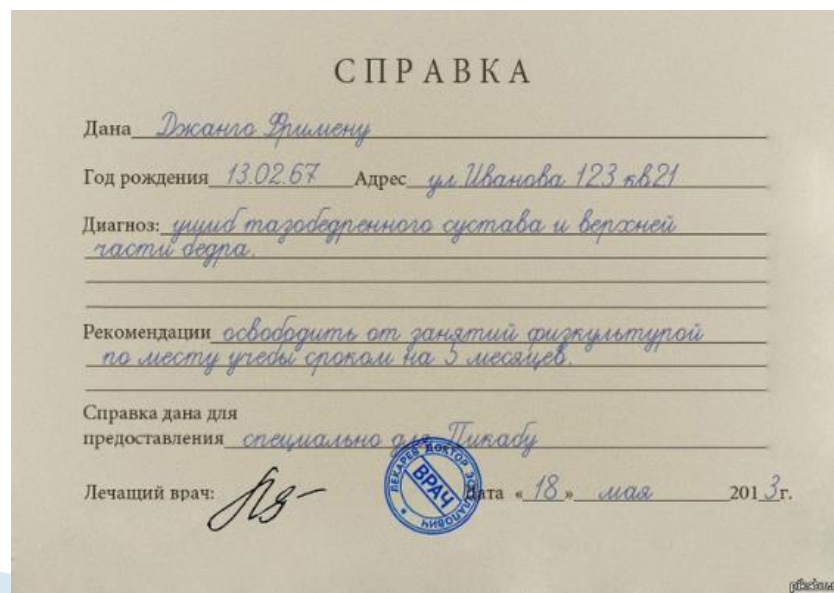 СПРАВКА
Дана Джанго Фримену
Год рождения 13.02.67 Адрес ул Иванова 123 кв21
Диагноз: ушиб тазобедренного сустава и верхней
части бедра.
Рекомендации освободить от занятий физкультурой
по месту учебы сроком на 5 месяцев.
Справка дана для
предоставления специально для Пикабу
Лечащий врач: Дата « 18 » мая 2013г.
ЛЕКАРЕВ ДОКТОР
ВРАЧ